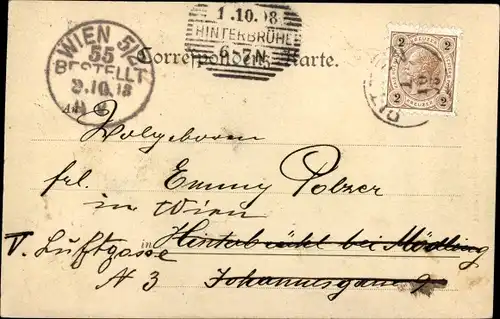 WIEN 5/2
55
BESTELLT
2.10.98
1.10.98
HINTERBRÜHL
6-7N
Correspondenz-Karte.
2 2
2 KREUZER 2
Wolgeboren
frl. Emmy Polzer
in Wien
V. Luftgasse in Hinterbrühl bei Mödling
N 3 Johannesgasse 9